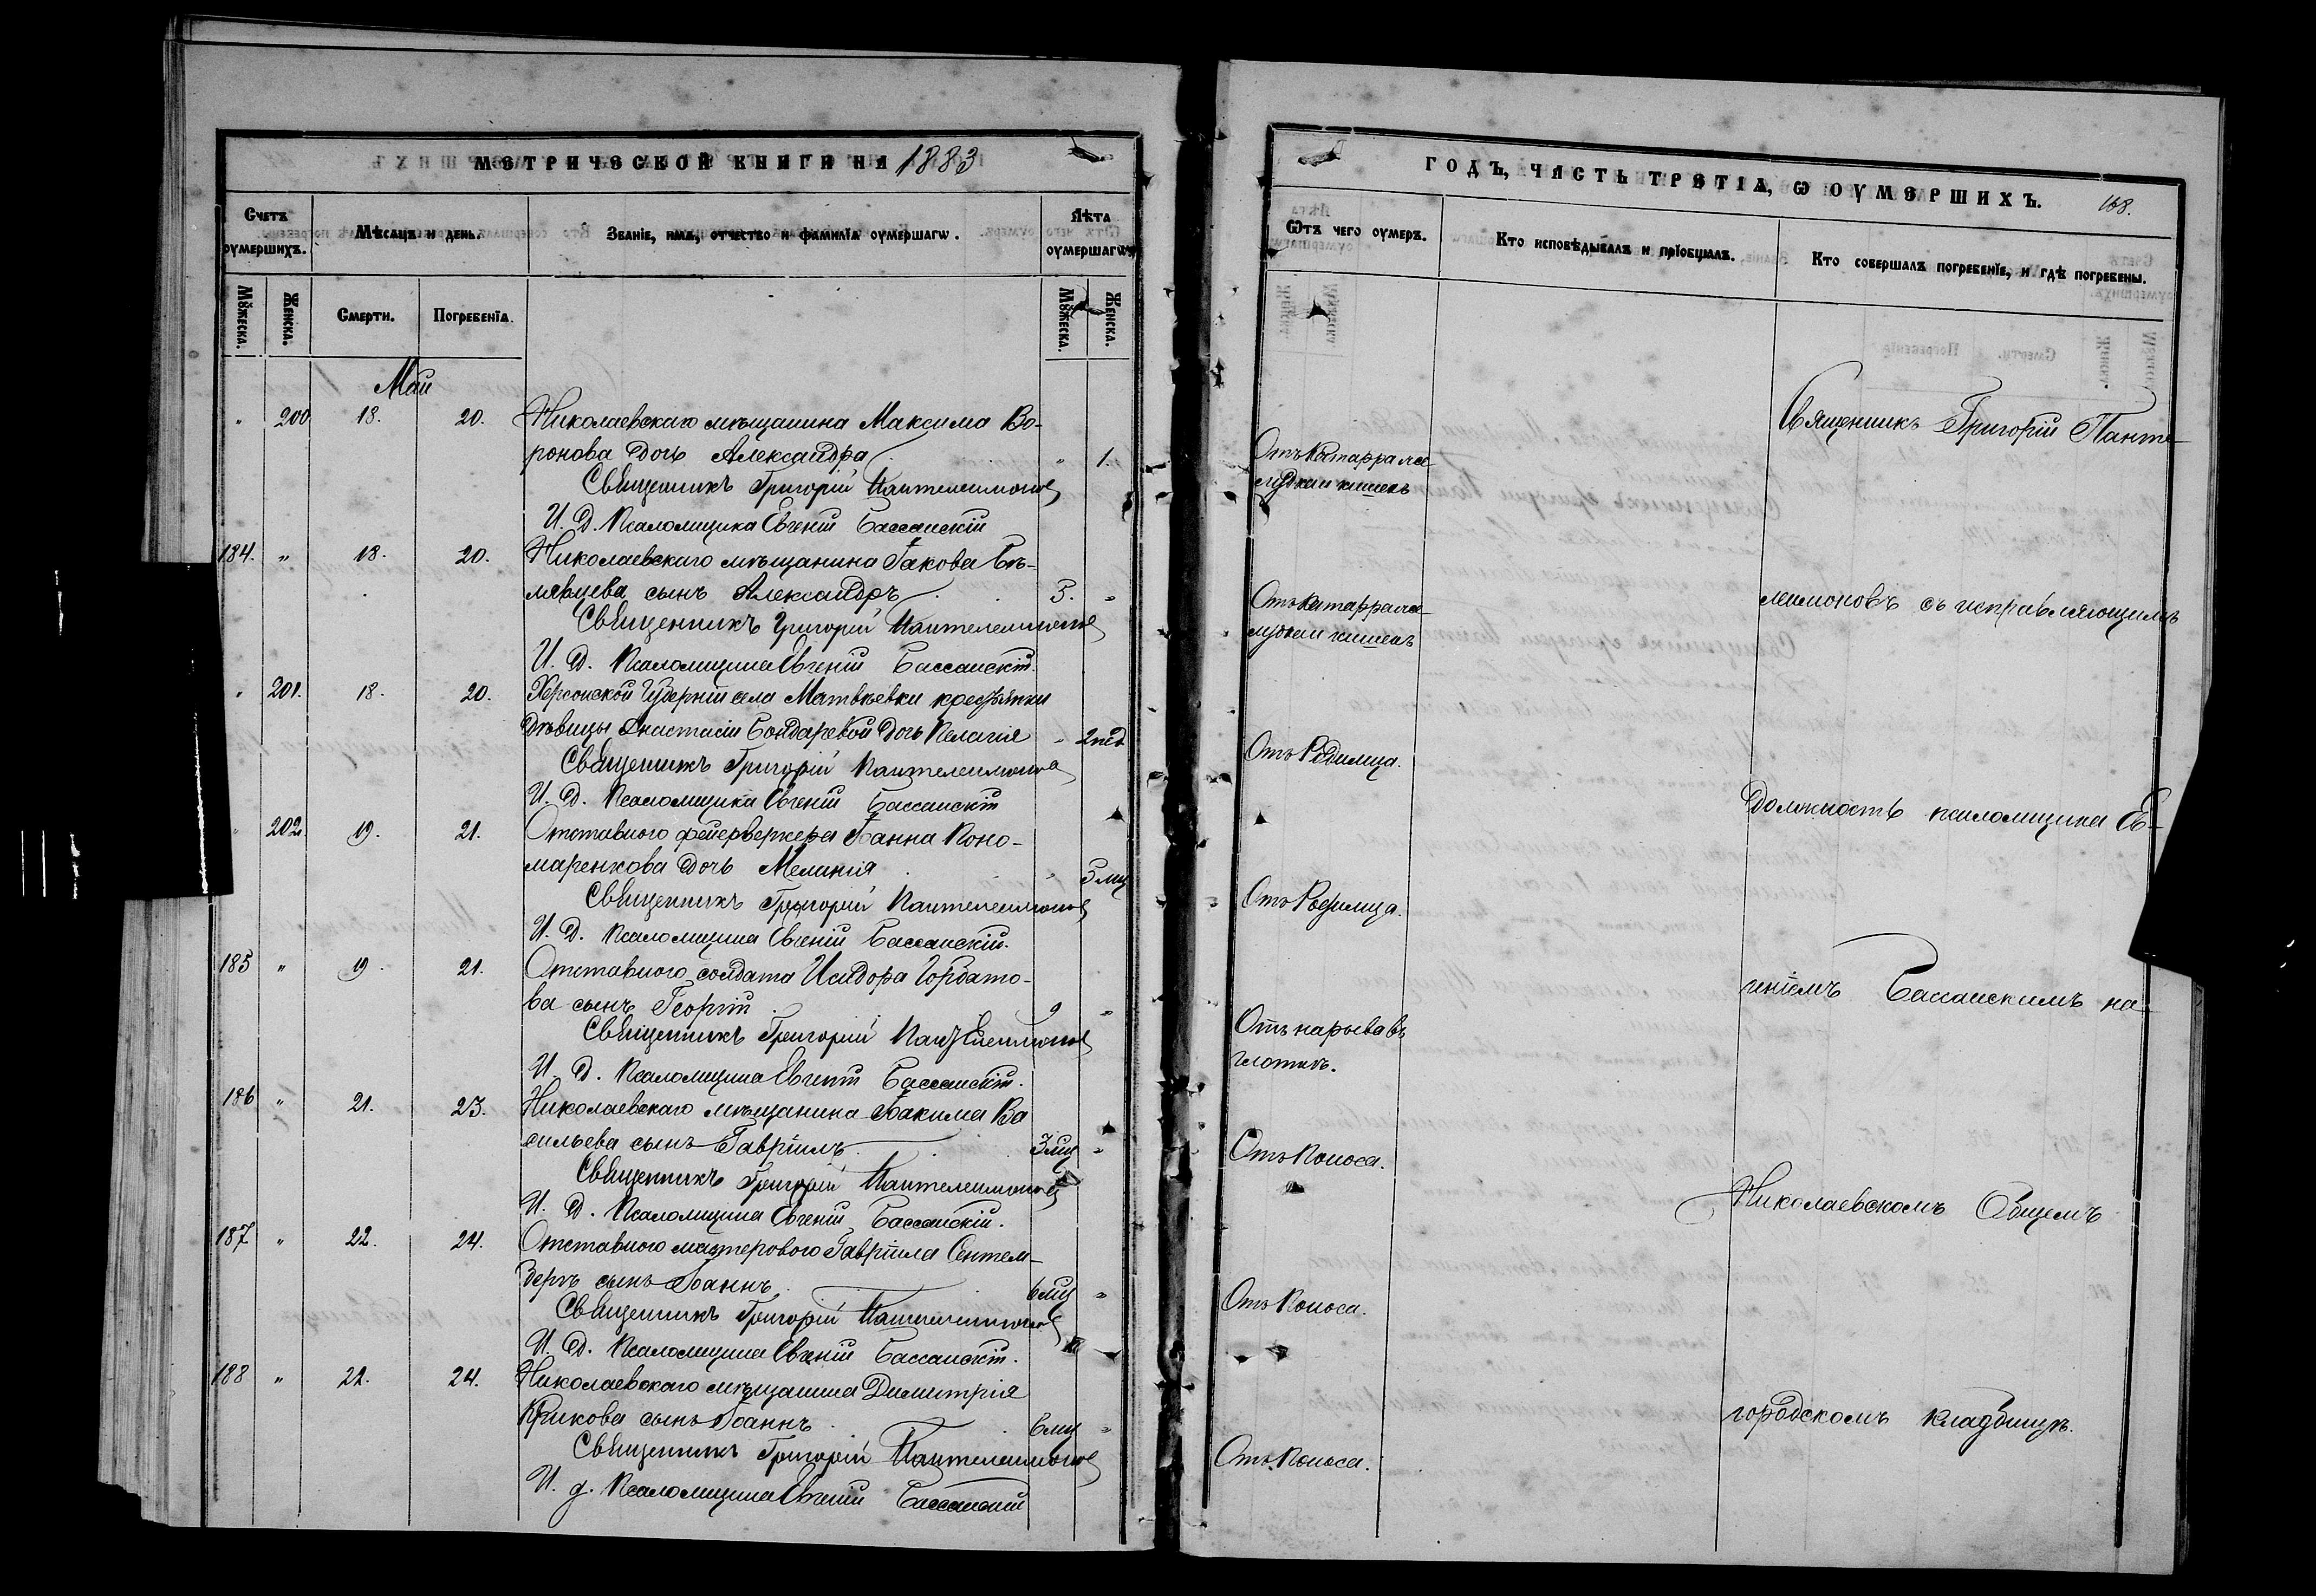 МЕТРИЧЕСКОЙ КНИГИ НА 1883
Счетъ оумершихъ.
Мѣсяцъ и день.
Званіе, имя, отчество и фамиліа оумершагѡ.
Лѣта оумершагѡ.
Мꙋжеска.
Женска.
Смерти.
Погребеніа.
Мꙋжеска.
Женска.
Май
" 200 18. 20. Николаевскаго мѣщанина Максима Во-
ронова дочь Александра " 1.
Священникъ Григорій Пантелеимоновъ
И. Д. Псаломщика Евгеній Бассанскій
184. " 18. 20. Николаевскаго мѣщанина Іакова Бѣ-
лявцева сынъ Александръ 3. "
Священникъ Григорій Пантелеимоновъ
И. Д. Псаломщика Евгеній Бассанскій.
" 201. 18. 20. Херсонской Губерніи села Матвѣевки крестьянки
дѣвицы Анастасіи Бондаревой дочь Пелагія " 2 нед
Священникъ Григорій Пантелеимоновъ
И. Д. Псаломщика Евгеній Бассанскій
" 202. 19. 21. Отставного фейерверкера Іоанна Поно-
маренкова дочь Меланія " 5 мц
Священникъ Григорій Пантелеимоновъ
И. Д. Псаломщика Евгеній Бассанскій.
185 " 19. 21. Отставного солдата Исидора Горбато-
ва сынъ Георгій 9 "
Священникъ Григорій Пантелеимоновъ
И. Д. Псаломщика Евгеній Бассанскій.
186 " 21. 23. Николаевскаго мѣщанина Іоакима Ва
сильева сынъ Гавріилъ 3 мц "
Священникъ Григорій Пантелеимоновъ
И. Д. Псаломщика Евгеній Бассанскій.
187 " 22. 24. Отставного мастерового Гавріила
сынъ Іоаннъ 6 мц "
Священникъ Григорій Пантелеимоновъ
И. Д. Псаломщика Евгеній Бассанскій.
188 " 22. 24. Николаевскаго мѣщанина Димитрія
Крикова сынъ Іоаннъ 6 мц "
Священникъ Григорій Пантелеимоновъ
И. д. Псаломщика Евгеній Бассанскій
ГОДЪ, ЧАСТЬ ТРЕТІА, Ѡ ОУМЕРШИХЪ.
168.
Ѿтъ чего оумеръ.
Кто исповѣдывалъ и пріобщалъ.
Кто совершалъ погребеніе, и гдѣ погребены.
Священникъ Григорій Панте-
Отъ катарра же-
лудка и кишекъ
Отъ катарра же-
лудка и кишекъ
леимоновъ съ исправляющимъ
Отъ Родимца.
должность псаломщика Ев-
Отъ Родимца.
геніемъ Бассанскимъ на
Отъ нарыва въ
глоткѣ.
Отъ Поноса.
Николаевскомъ Общемъ
Отъ Поноса.
городскомъ кладбищѣ.
Отъ Поноса.